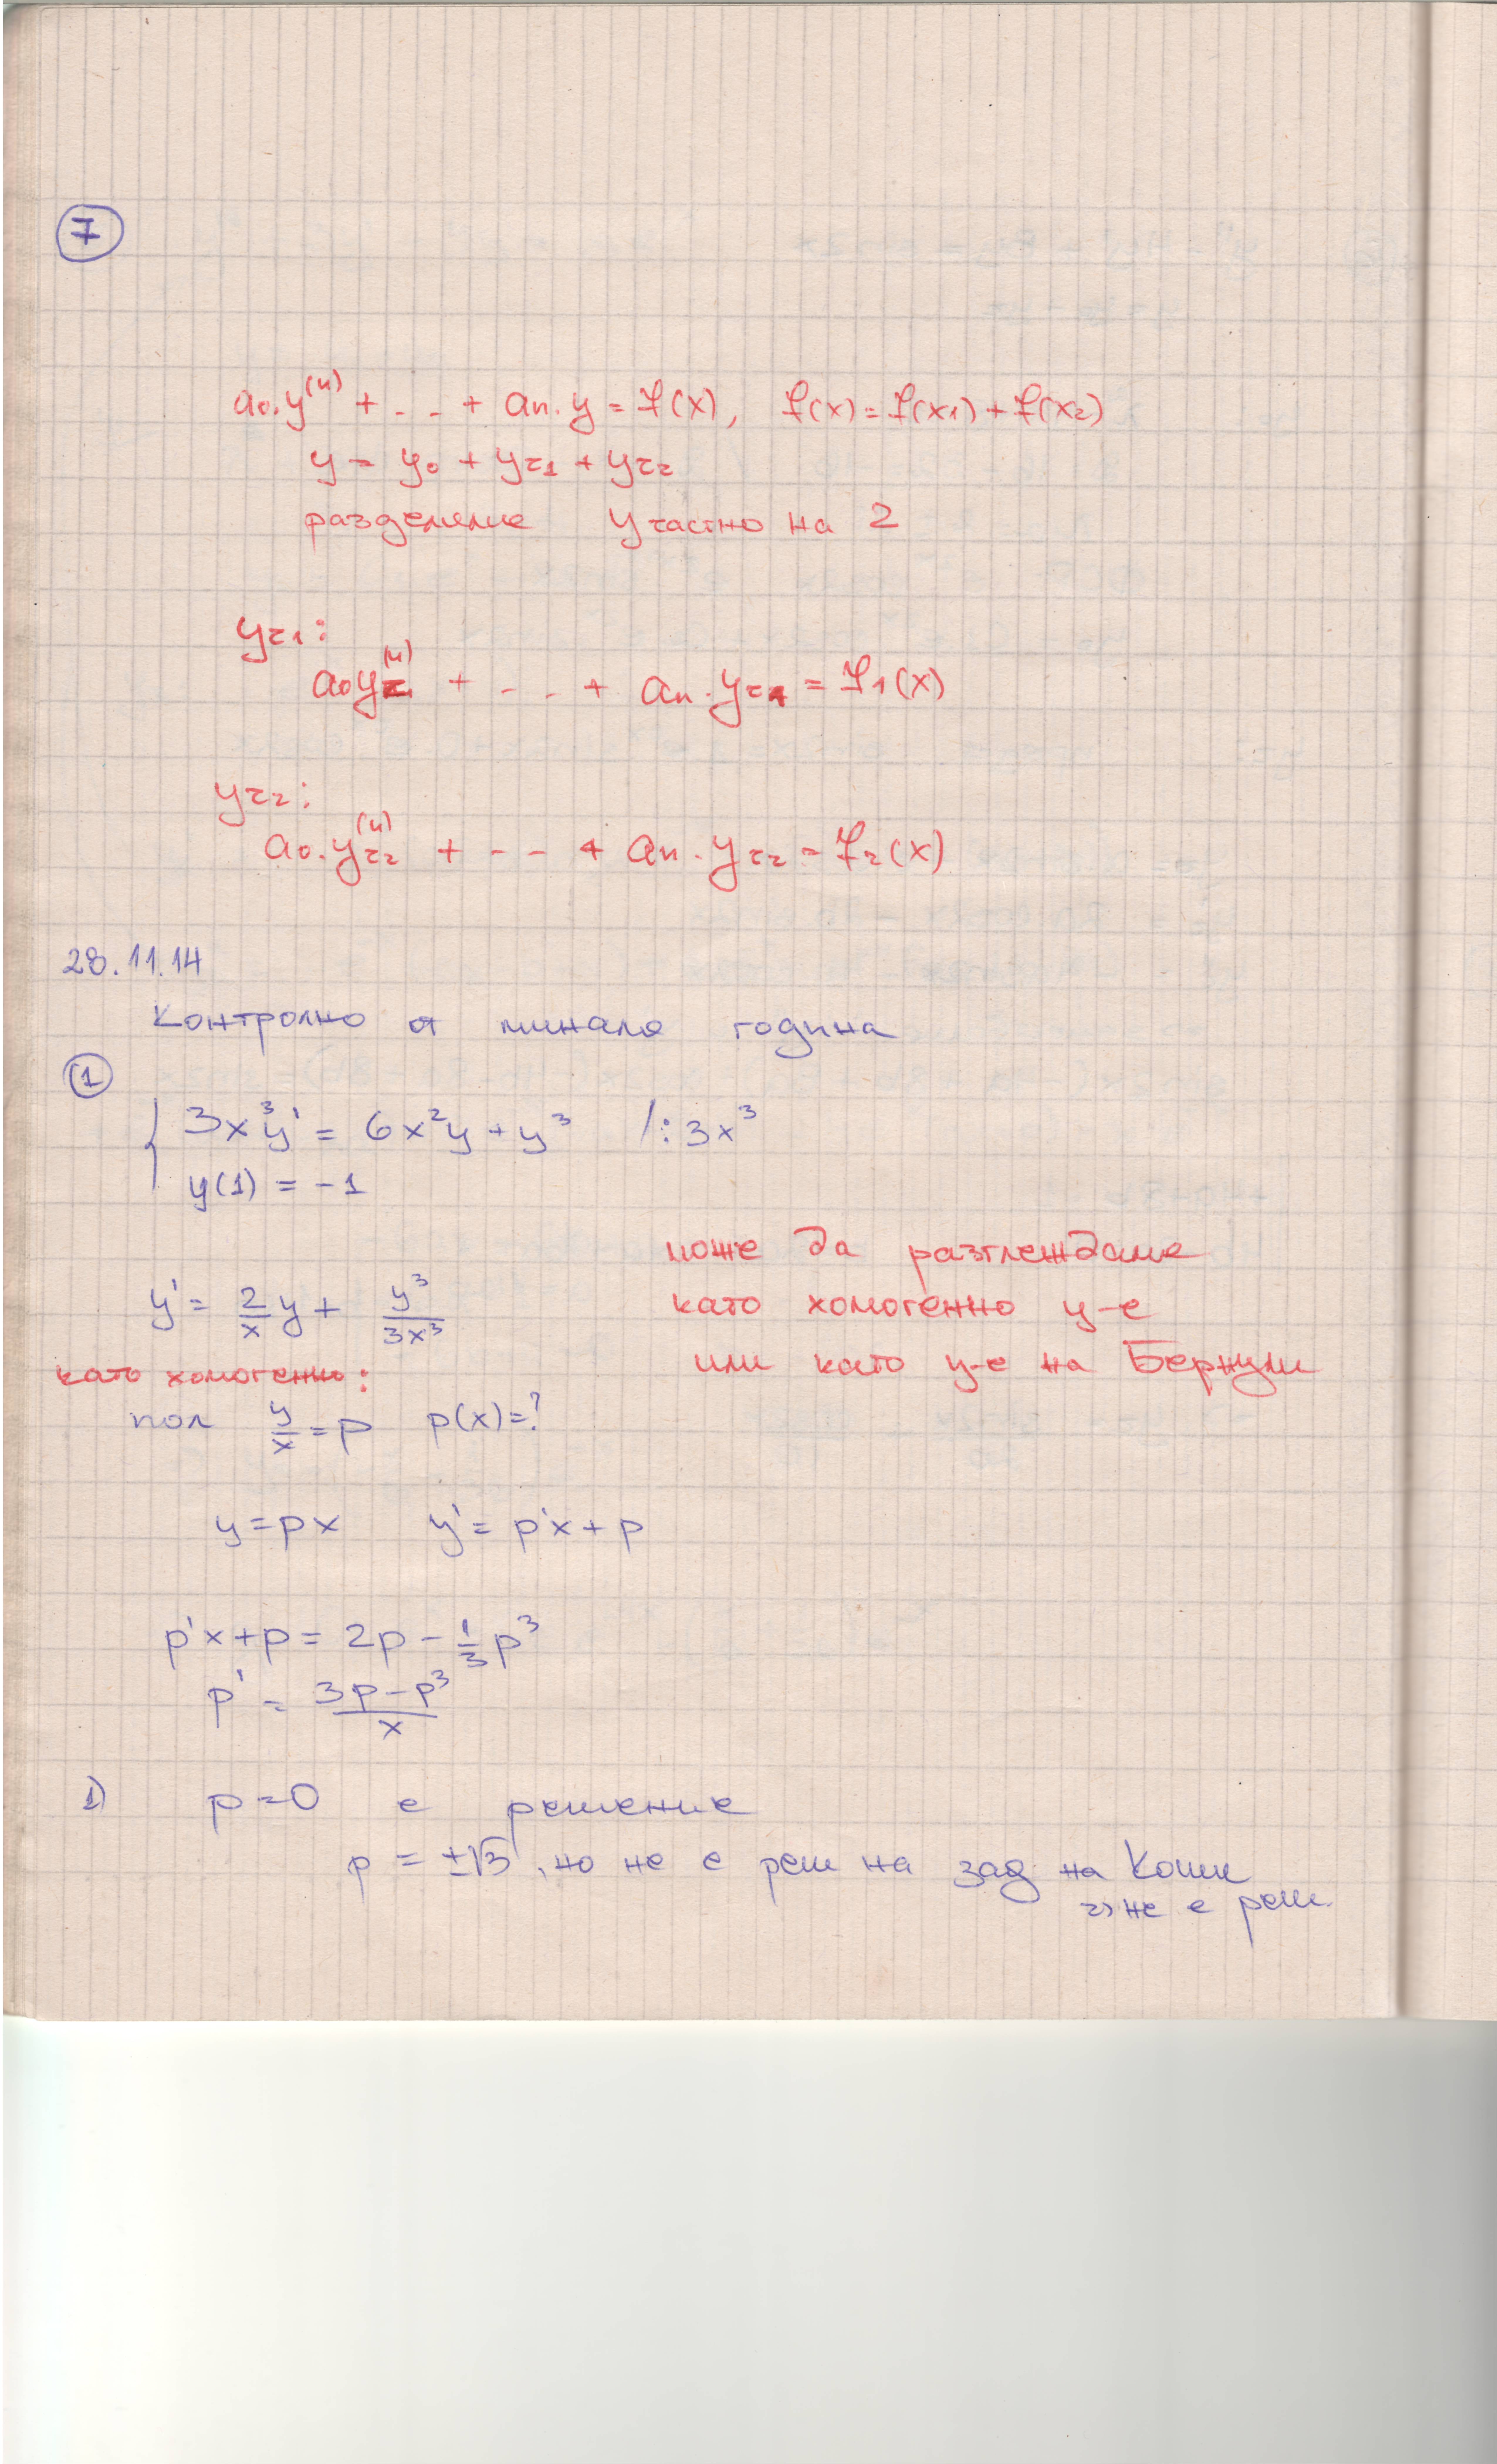 7
a₀.y⁽ⁿ⁾ + ... + aₙ.y = f(x), f(x) = f(x₁) + f(x₂)
y = y₀ + yч₁ + yч₂
разделяме y частно на 2
yч₁:
a₀yч₁⁽ⁿ⁾ + ... + aₙ.yч₁ = f₁(x)
yч₂:
a₀.yч₂⁽ⁿ⁾ + ... + aₙ.yч₂ = f₂(x)
28.11.14
Контролно от минала година
1
{ 3x³y' = 6x²y + y³ /:3x³
y(1) = -1
може да разглеждаме
y' = 2/x y + y³/3x³ като хомогенно у-е
или като у-е на Бернули
като хомогенно:
пол y/x = p p(x)=?
y = px y' = p'x + p
p'x + p = 2p - 1/3 p³
p' = 3p - p³/x
1) p = 0 е решение
p = ±√3, но не е реш на зад на Коши
=> не е реш.